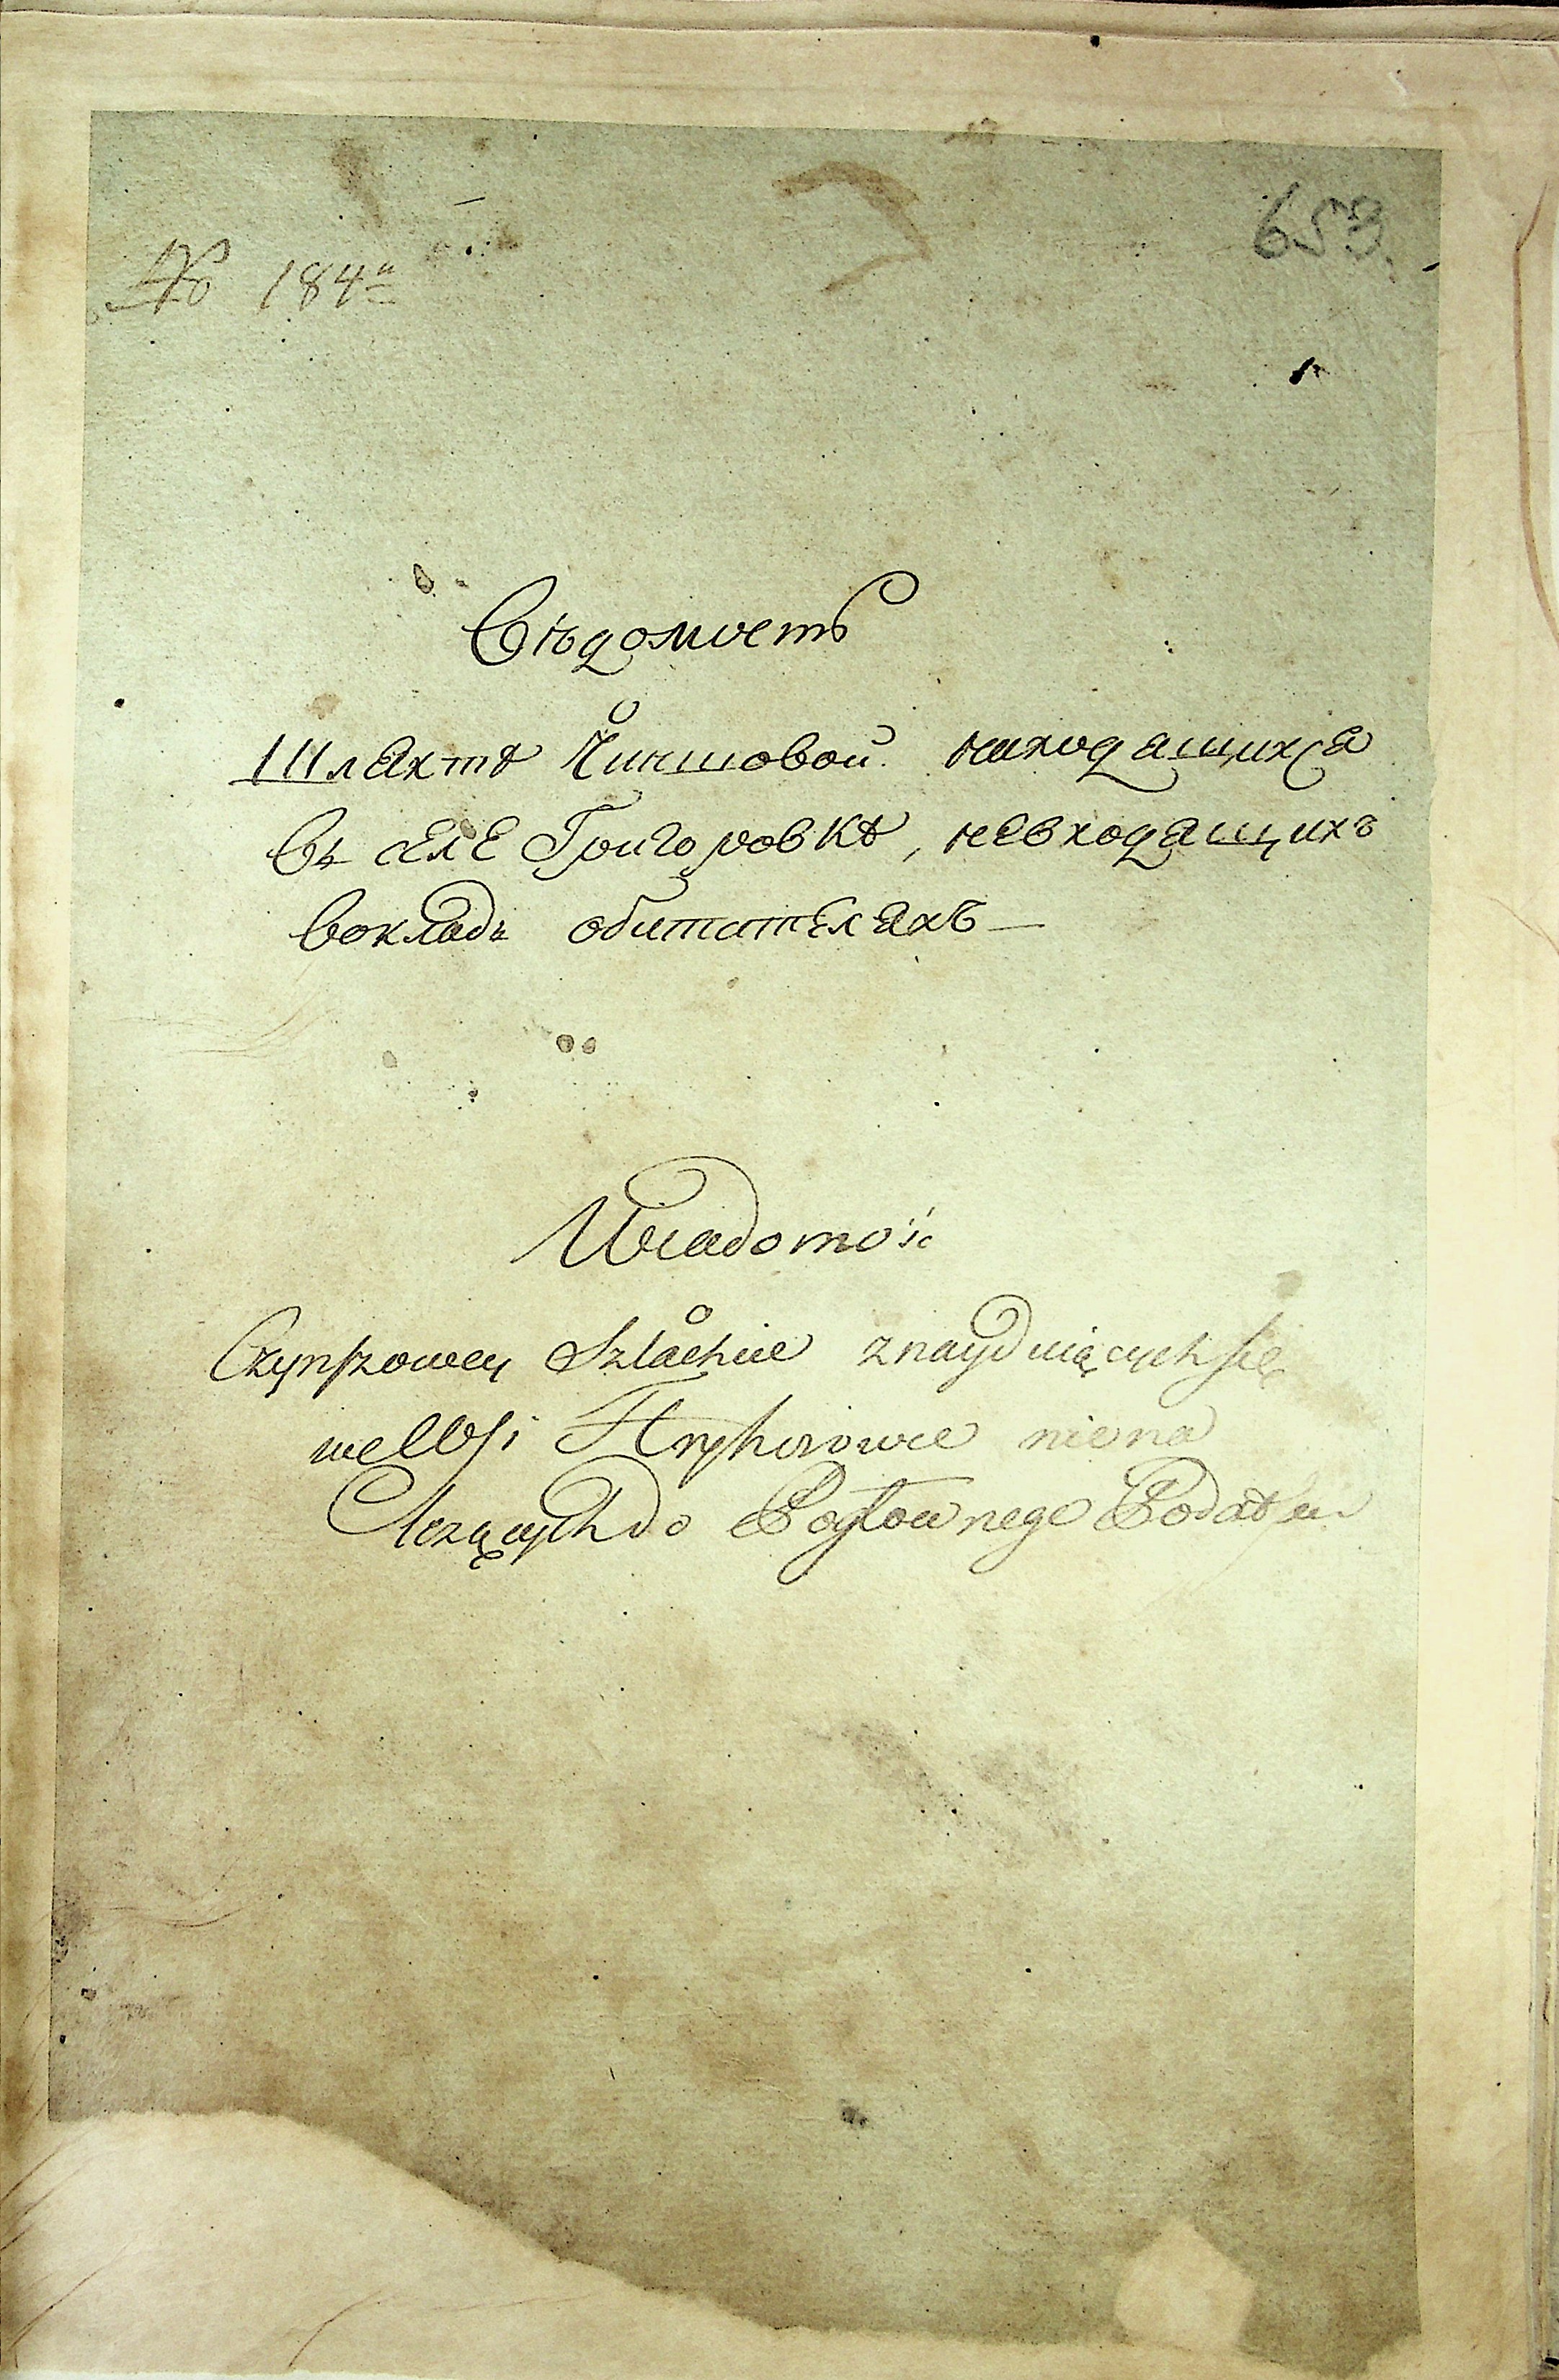 № 184й
653.
Вѣдомость
о
Шляхтѣ Чиншовой находящихся
въ селе Григоровкѣ, невходящихъ
вокладъ обитателяхъ —
Wiadomość
o
Czynszowey Szlachcie znayduiącychsię
we Wsi Hryhorowce niena
leżących do Pogłownego Podatku